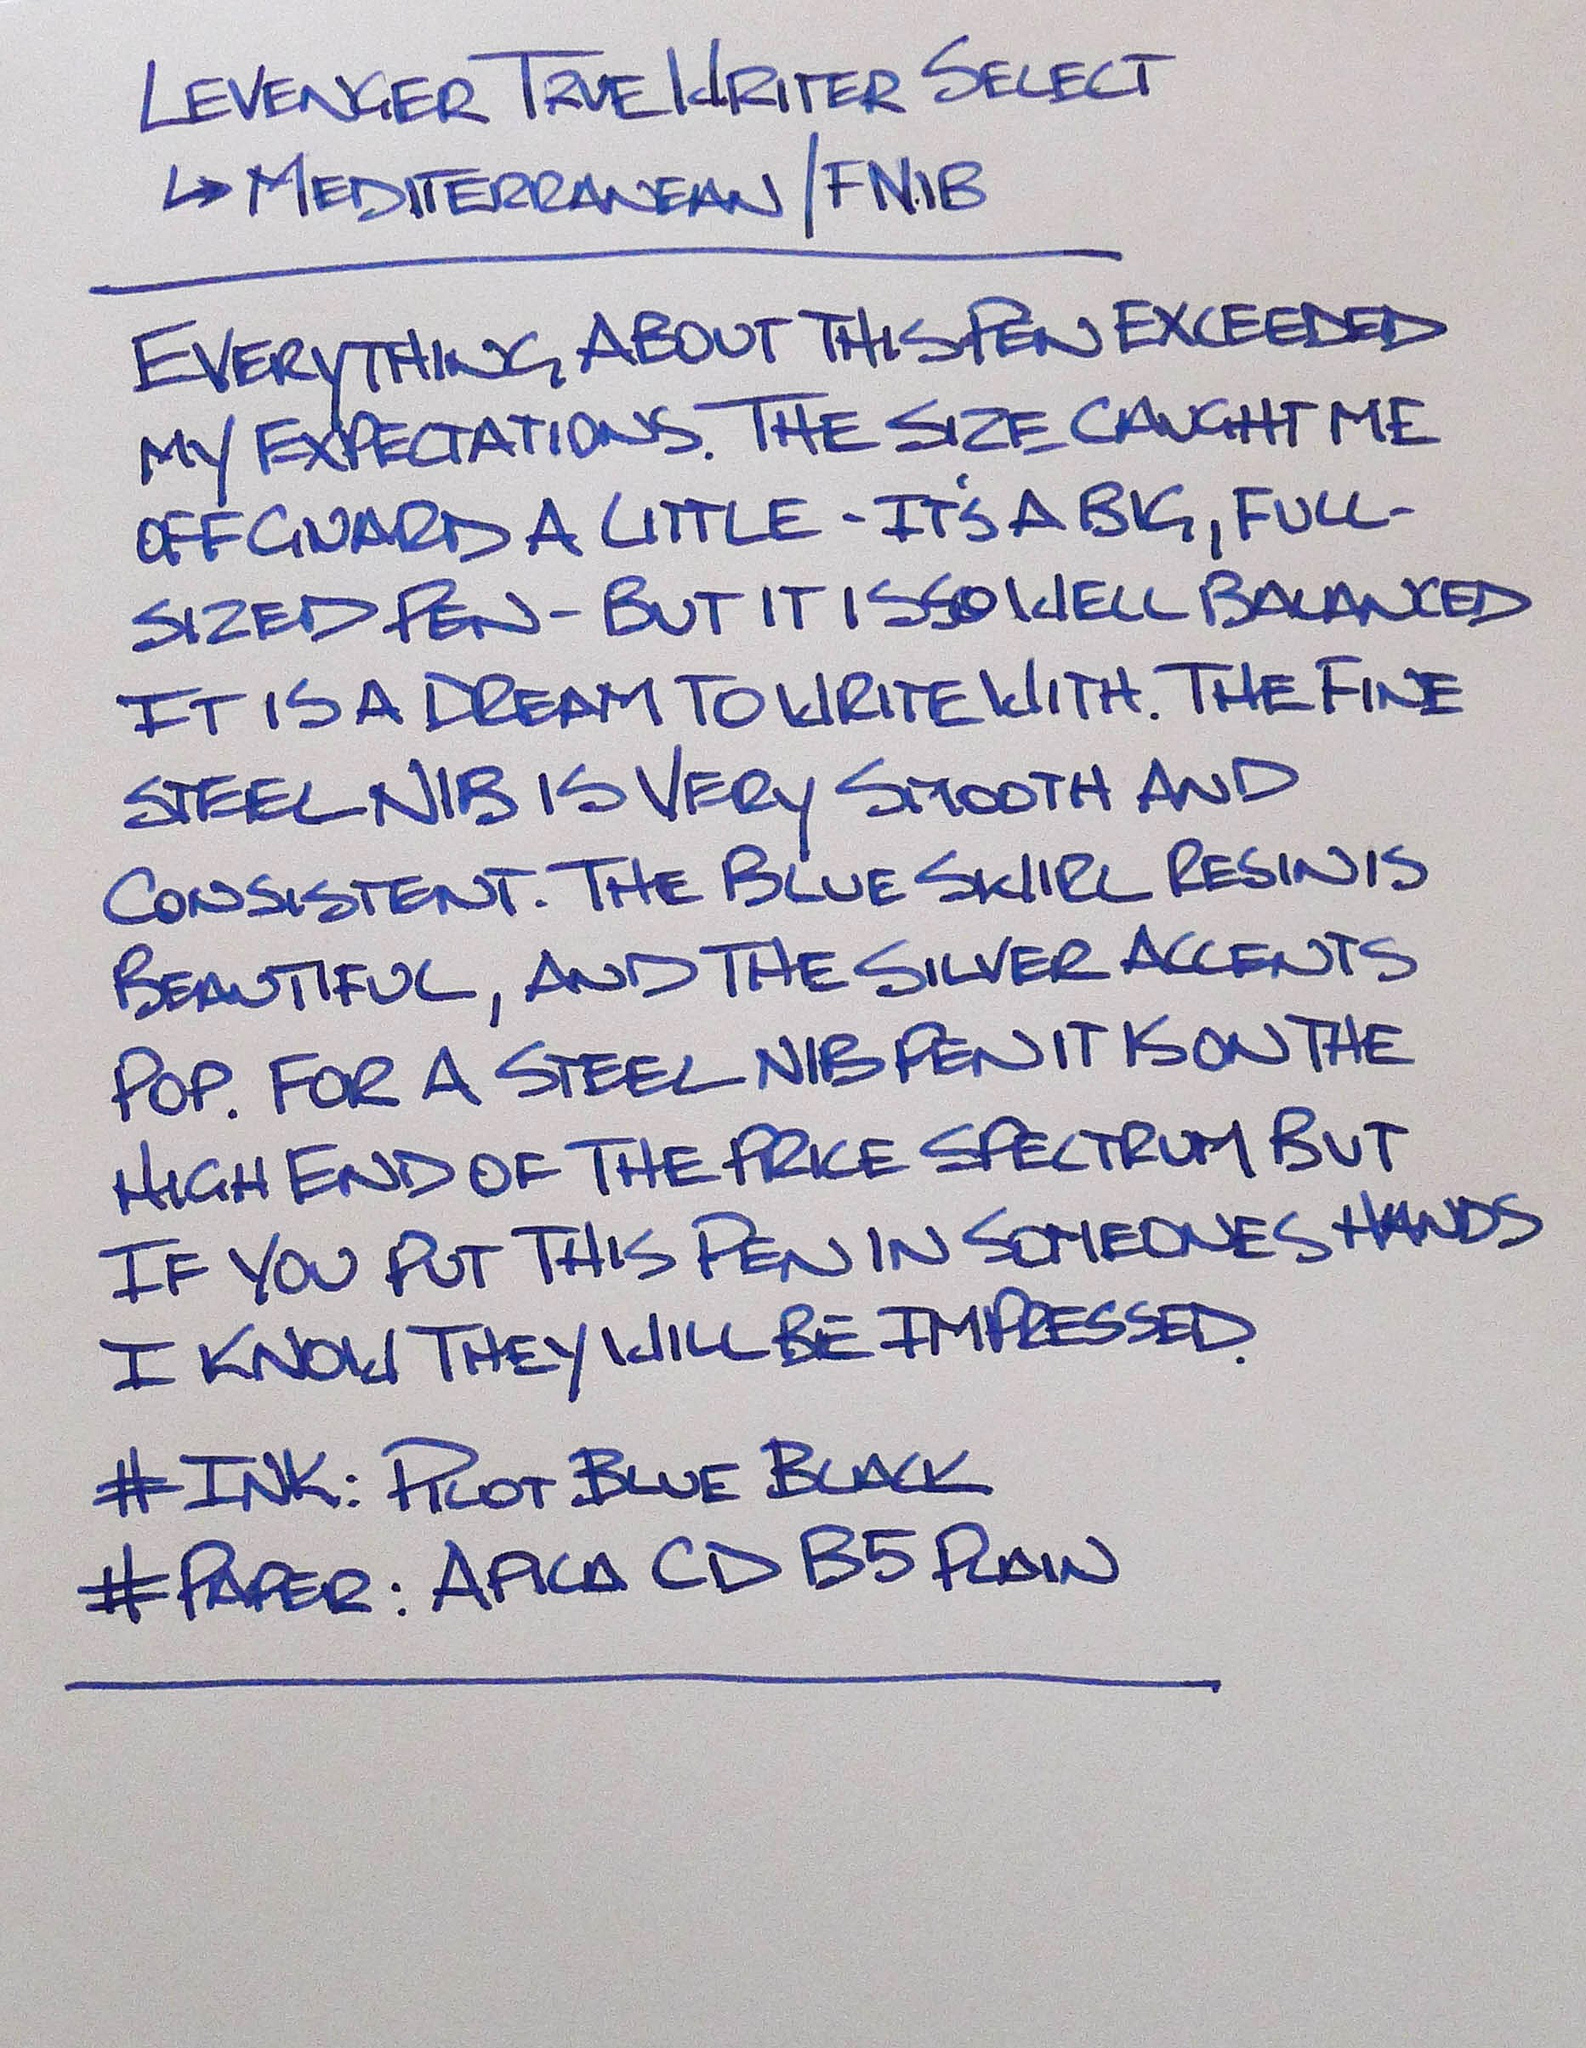 LEVENGER TRUE WRITER SELECT
↳ MEDITERRANEAN / F NIB
EVERYTHING ABOUT THIS PEN EXCEEDED
MY EXPECTATIONS. THE SIZE CAUGHT ME
OFF GUARD A LITTLE - IT'S A BIG, FULL-
SIZED PEN - BUT IT IS SO WELL BALANCED
IT IS A DREAM TO WRITE WITH. THE FINE
STEEL NIB IS VERY SMOOTH AND
CONSISTENT. THE BLUE SWIRL RESIN IS
BEAUTIFUL, AND THE SILVER ACCENTS
POP. FOR A STEEL NIB PEN IT IS ON THE
HIGH END OF THE PRICE SPECTRUM BUT
IF YOU PUT THIS PEN IN SOMEONES HANDS
I KNOW THEY WILL BE IMPRESSED.
# INK: PILOT BLUE BLACK
# PAPER: APICA CD B5 PLAIN